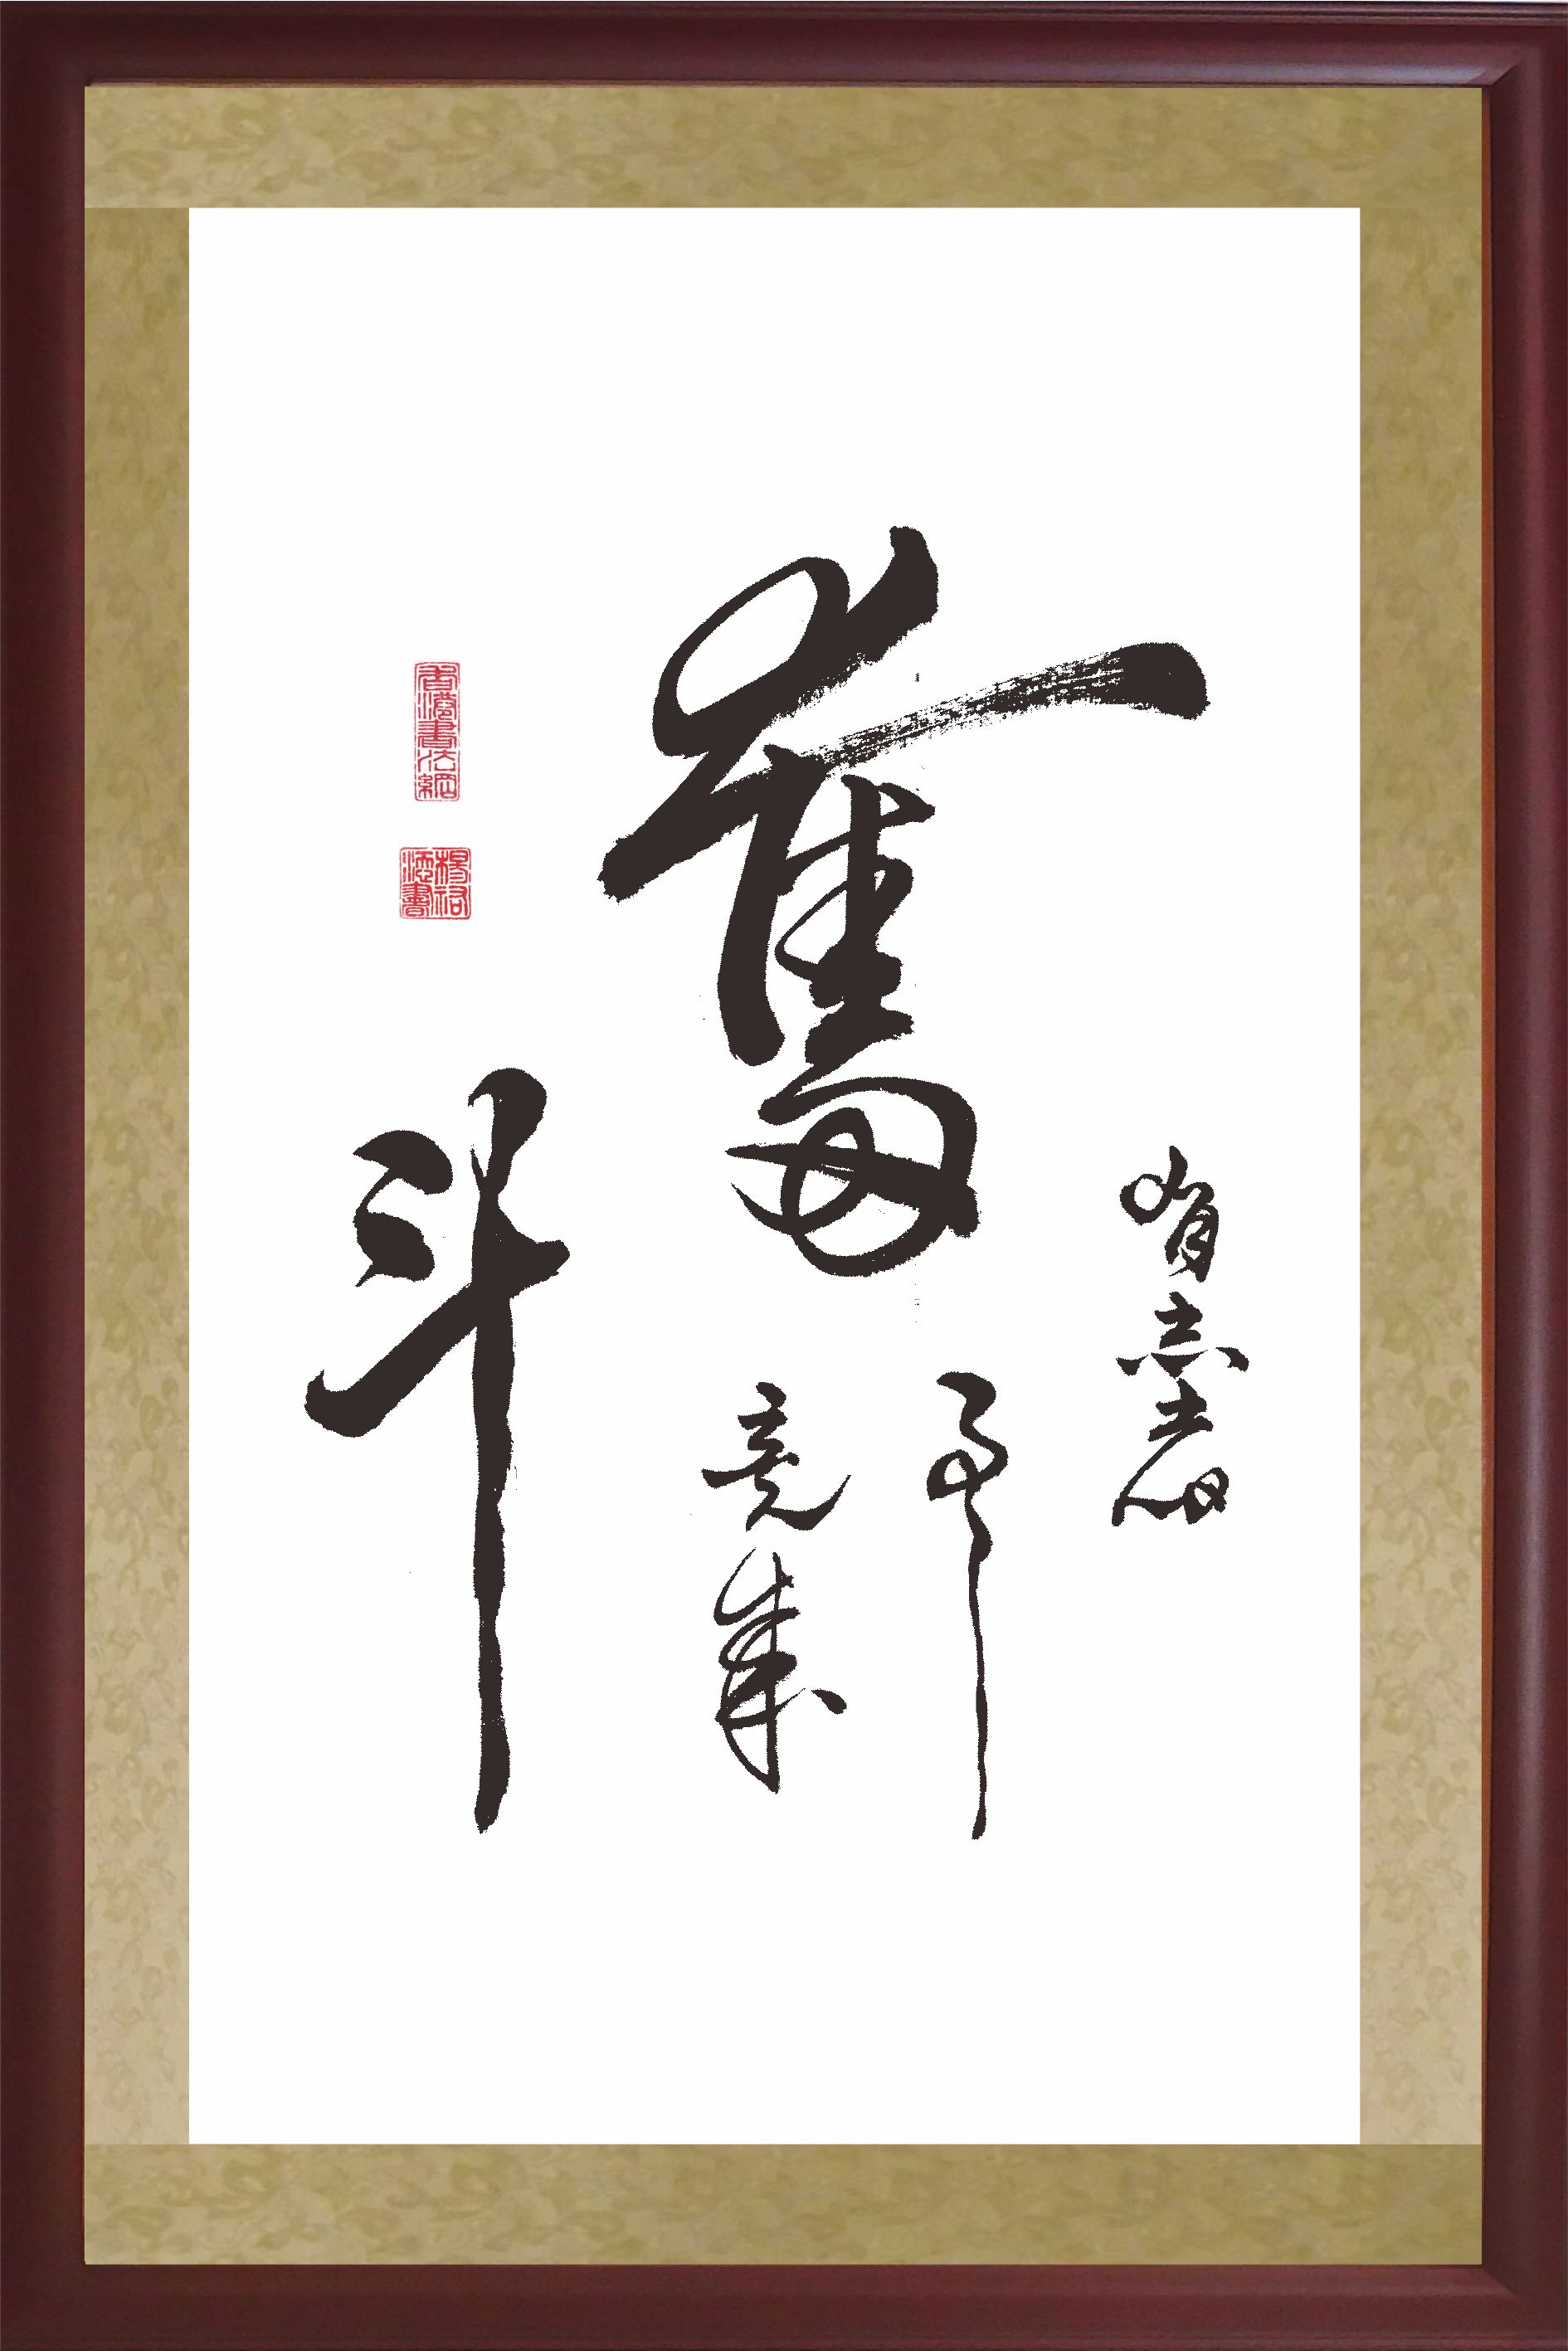 奮
斗
有志者
事
竟成
香港書法網
楊洛
書